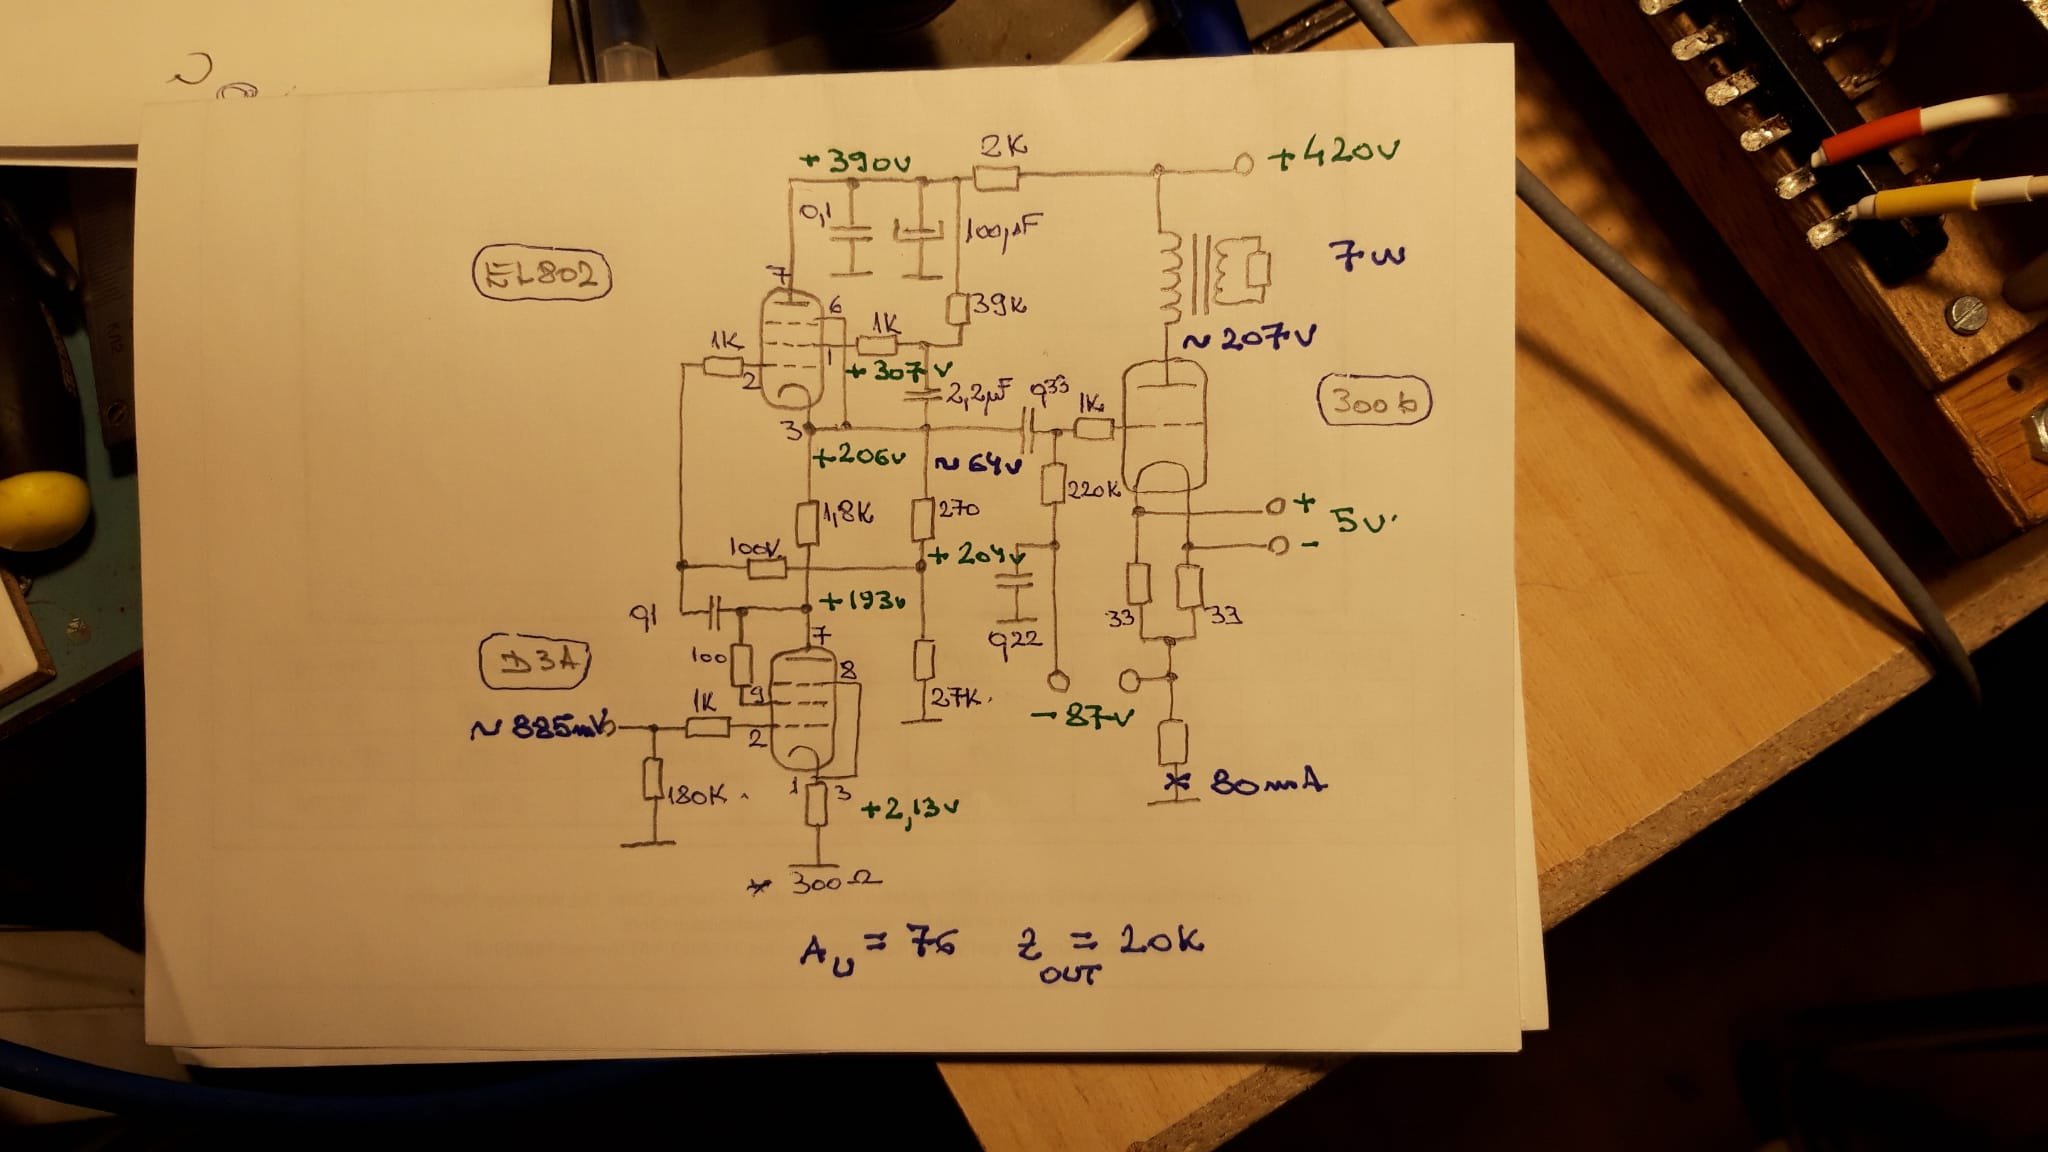 +390v
2K
+420v
0,1
100µF
EL802
7
39K
7w
6
1K
1K
1
2
+307v
~207v
2,2µF
q33
1K
300b
3
+206v
~64v
220K
+
5v
-
1,8K
270
+204v
+193v
q1
7
33
33
q22
100
8
D3A
9
1K
27K.
-87v
~885mV
2
180K.
1
3
+2,13v
* 80mA
* 300Ω
AU = 76
ZOUT = 20K